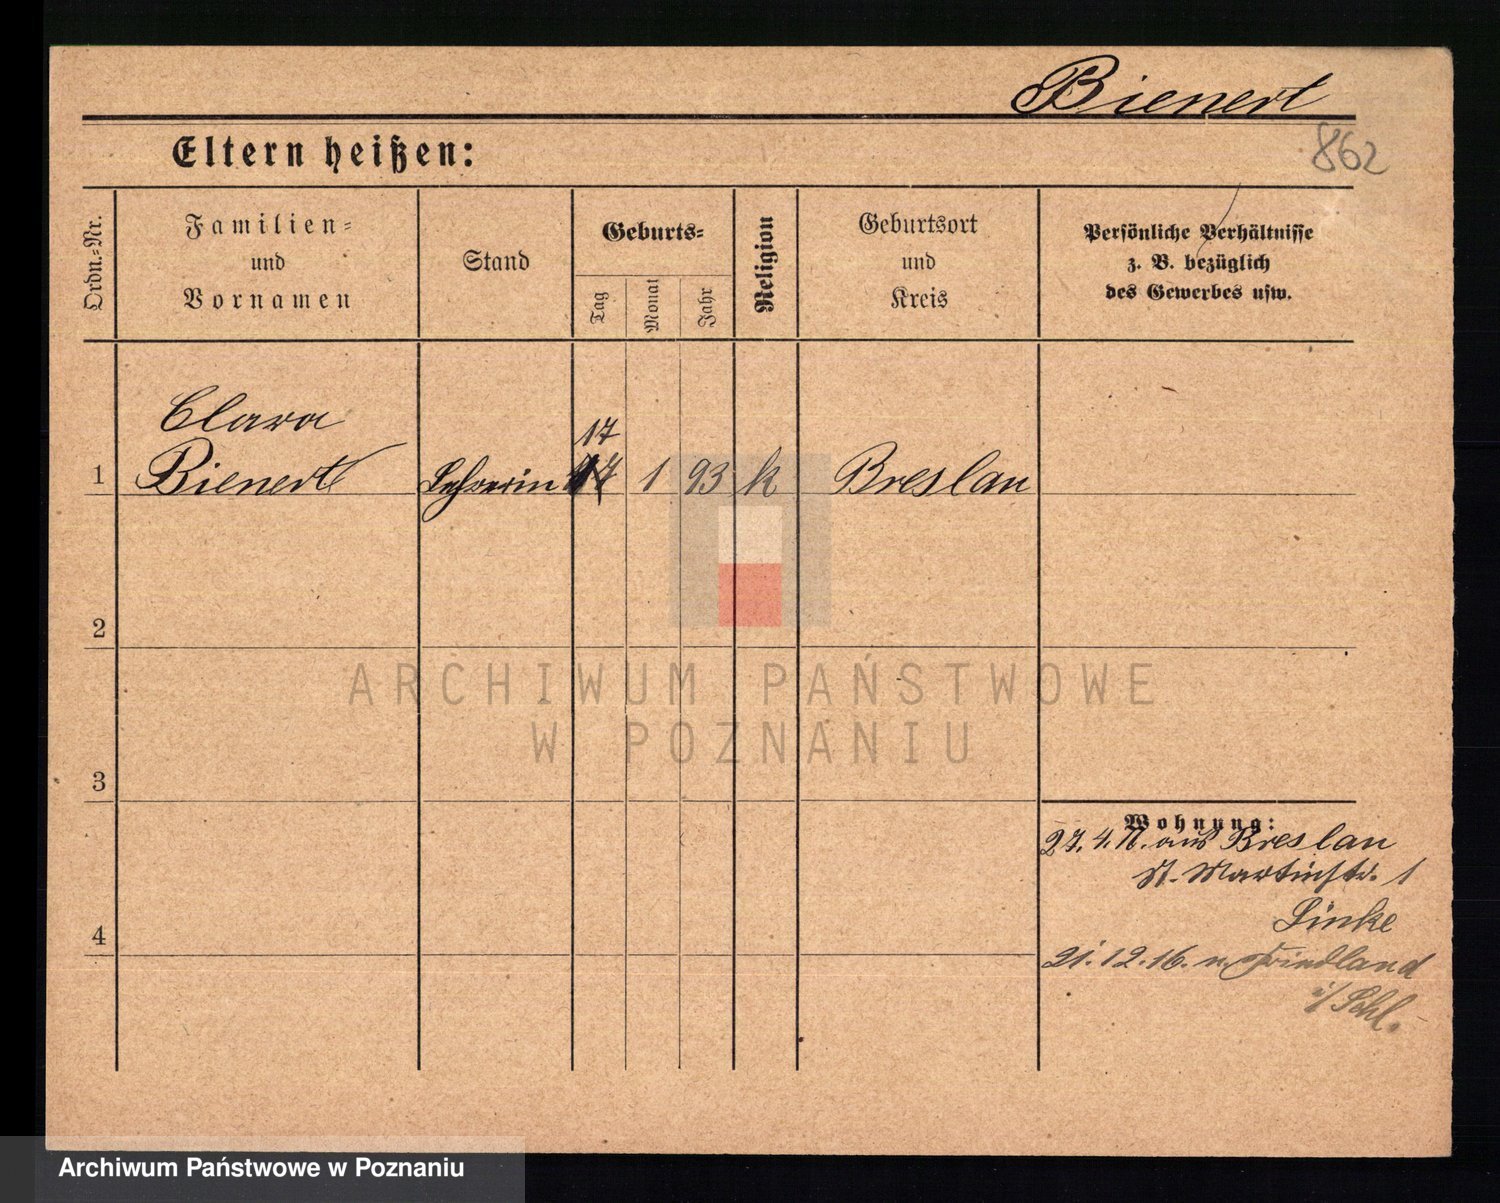 Bienert
862
Eltern heißen:
Ordn.-Nr.
Familien-
und
Vornamen
Stand
Geburts-
Tag
Monat
Jahr
Religion
Geburtsort
und
Kreis
Persönliche Verhältnisse
z. B. bezüglich
des Gewerbes usw.
Clara
17
1 Bienert Lehrerin 1 93 k Breslau
2
3
4
Wohnung:
27. 4. aus Breslau
St. Martinstr. 1
Linke
21.12.16. n. Friedland
i/ Schl.
ARCHIWUM PAŃSTWOWE
W POZNANIU
Archiwum Państwowe w Poznaniu